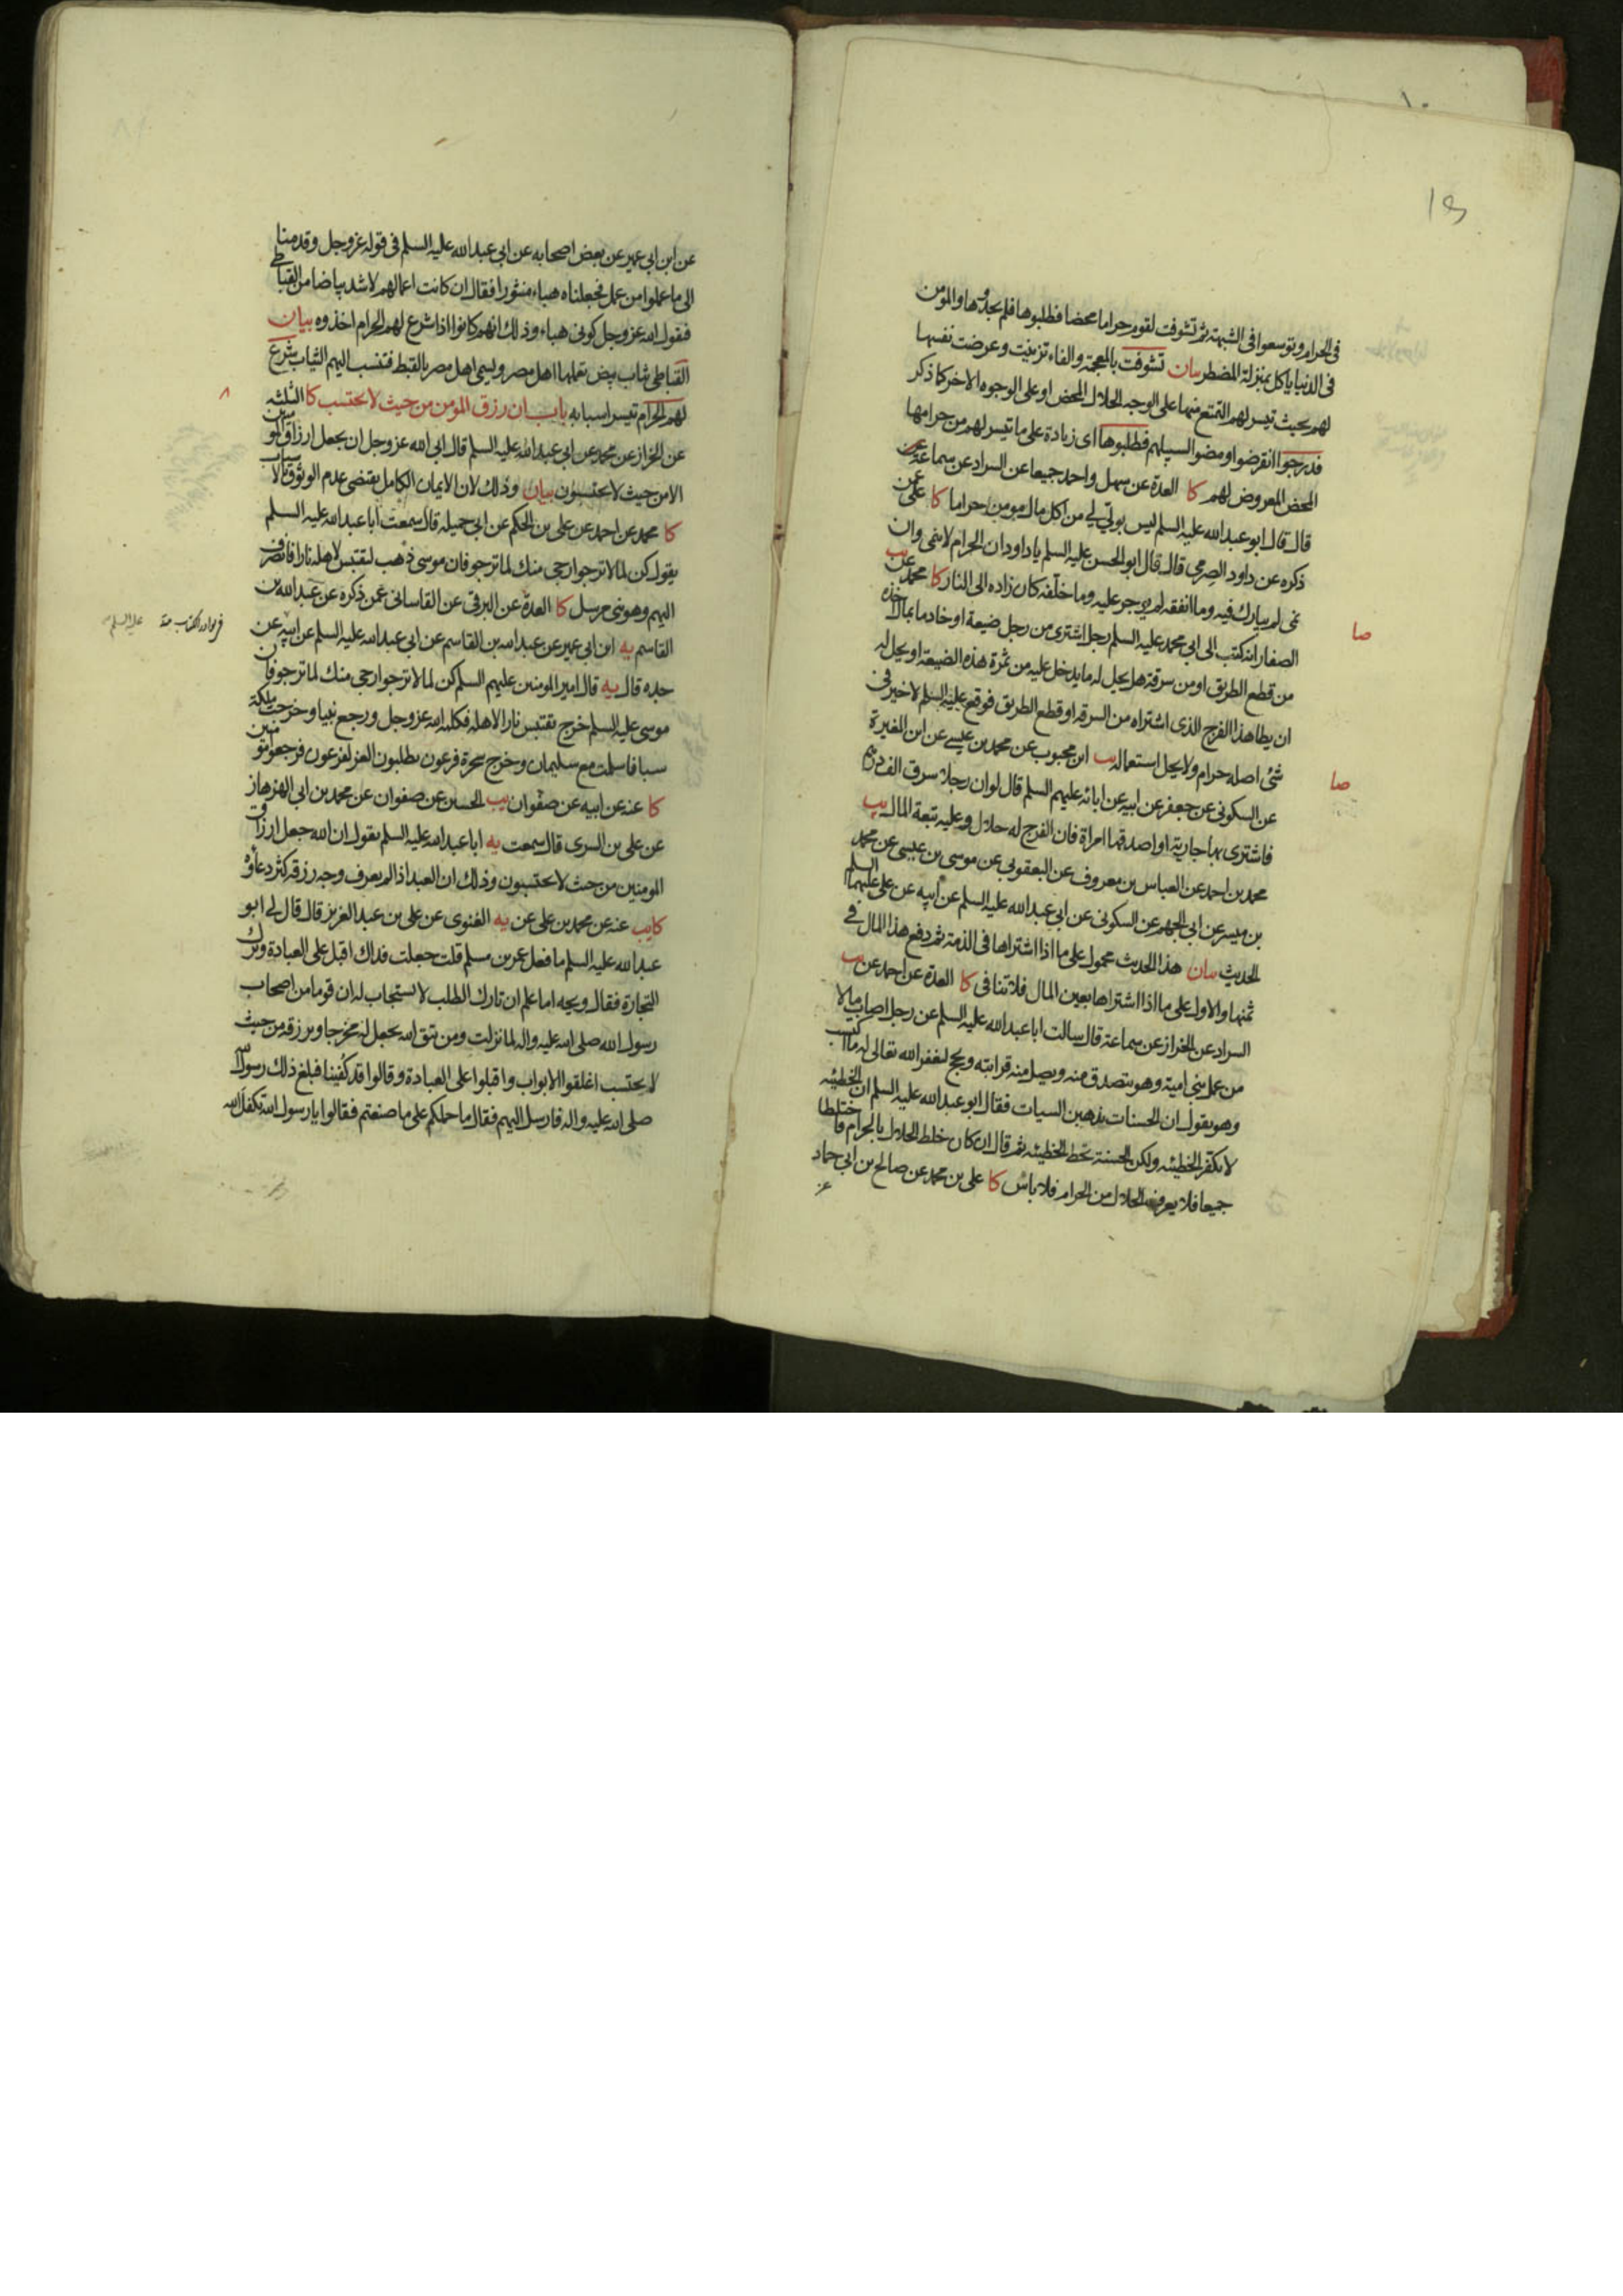 في الحرام وتوسعوا في الشبهة ثم تشوفت لقوم حراما محضا فطلبوها فلم يجدوها والمؤمن
في الدنيا ياكل بمنزلة المضطر بيان تشوفت بالمعجمة والفاء تزينت وعرضت نفسها
لهم بحيث تيسر لهم التمتع منها على الوجه الحلال المحض او على الوجوه الاخر كما ذكر
فدرجوا انقرضوا ومضوا لسبيلهم فطلبوها اى زيادة على ما تيسر لهم من حرامها
المحض المعروض لهم كا العدة عن سهل واحمد جميعا عن السراد عن سماعة
قال قال ابو عبد الله عليه السلم ليس بولي لي من اكل مال مومن حراما كا علي عمن
ذكره عن داود الصرمي قال قال ابو الحسن عليه السلم يا داود ان الحرام لا ينمى وان
نمى لم يبارك فيه وما انفقه لم يوجر عليه وما خلفه كان زاده الى النار كا محمد يب عن
الصفار انه كتب الى ابي محمد عليه السلم رجل اشترى من رجل ضيعة او خادما بمال اخذه
من قطع الطريق او من سرقة هل يحل له ما يدخل عليه من ثمرة هذه الضيعة او يحل له
ان يطا هذا الفرج الذى اشتراه من السرقة او قطع الطريق فوقع عليه السلم لا خير في
شئ اصله حرام ولا يحل استعماله يب ابن محبوب عن محمد بن عيسى عن ابن المغيرة
عن السكوني عن جعفر عن ابيه عن ابائه عليهم السلم قال لو ان رجلا سرق الف درهم
فاشترى بها جارية او اصدقها امراة فان الفرج له حلال وعليه تبعة المال يب
محمد بن احمد عن العباس بن معروف عن اليعقوبي عن موسى بن عيسى عن محمد
بن ميسر عن ابي الجهم عن السكوني عن ابي عبد الله عليه السلم عن ابيه عن علي عليهما السلم
الحديث بيان هذا الحديث محمول على ما اذا اشتراها في الذمة ثم دفع هذا المال في
ثمنها والاول على ما اذا اشتراها بعين المال فلا تنافى كا العدة عن احمد عن يب
السراد عن الخراز عن سماعة قال سالت ابا عبد الله عليه السلم عن رجل اصاب مالا
من عمل بني امية وهو يتصدق منه ويصل منه قرابته ويحج ليغفر الله تعالى له ما اكتسب
وهو يقول ان الحسنات يذهبن السيات فقال ابو عبد الله عليه السلم ان الخطيئه
لا تكفر الخطيئه ولكن الحسنة تحط الخطيئه ثم قال ان كان خلط الحلال بالحرام فاختلطا
جميعا فلا يعرف الحلال من الحرام فلا باس كا على بن محمد عن صالح بن ابي حماد
عن
صا
صا
عن ابن ابي عمير عن بعض اصحابه عن ابي عبد الله عليه السلم في قوله عز وجل وقدمنا
الى ما عملوا من عمل فجعلناه هباء منثورا فقال ان كانت اعمالهم لاشد بياضا من القباطي
فيقول الله عز وجل كوني هباء وذلك انهم كانوا اذا شرع لهم الحرام اخذوه بيان
القباطي ثياب بيض تعملها اهل مصر ويسمى اهل مصر بالقبط فتنسب اليهم الثياب شرع
لهم الحرام تيسر اسبابه باب ان رزق المومن من حيث لا يحتسب كا الثلثه
عن الخراز عن محمد عن ابي عبد الله عليه السلم قال ابى الله عز وجل ان يجعل ارزاق المومنين
الا من حيث لا يحتسبون بيان وذلك لان الايمان الكامل يقتضى عدم الوثوق بالاسباب
كا محمد عن احمد عن على بن الحكم عن ابي جميله قال سمعت ابا عبد الله عليه السلم
يقول كن لما لا ترجوا رجى منك لما ترجو فان موسى ذهب ليقتبس لاهله نارا فانصرف
اليهم وهو نبي مرسل كا العدة عن البرقي عن القاساني عمن ذكره عن عبد الله بن
القاسم يه ابن ابي عمير عن عبد الله بن القاسم عن ابي عبد الله عليه السلم عن ابيه عن
جده قال يه قال امير المومنين عليهم السلم كن لما لا ترجوا رجى منك لما ترجو فان
موسى عليه السلم خرج يقتبس نارا لاهله فكلمه الله عز وجل ورجع نبيا وخرجت ملكة
سبا فاسلمت مع سليمان وخرج سحرة فرعون يطلبون العز لفرعون فرجعوا مومنين
كا عنه عن ابيه عن صفوان يب الحسين عن صفوان عن محمد بن ابي الهزهاز
عن على بن السرى قال سمعت يه ابا عبد الله عليه السلم يقول ان الله جعل ارزاق
المومنين من حيث لا يحتسبون وذلك ان العبد اذا لم يعرف وجه رزقه كثر دعاؤه
كا يب عنه عن محمد بن على عن يه الغنوى عن على بن عبد العزيز قال قال لي ابو
عبد الله عليه السلم ما فعل عمر بن مسلم قلت جعلت فداك اقبل على العبادة وترك
التجارة فقال ويحه اما علم ان تارك الطلب لا يستجاب له ان قوما من اصحاب
رسول الله صلى الله عليه واله لما نزلت ومن يتق الله يجعل له مخرجا ويرزقه من حيث
لا يحتسب اغلقوا الابواب واقبلوا على العبادة وقالوا قد كفينا فبلغ ذلك رسول الله
صلى الله عليه واله فارسل اليهم فقال ما حملكم على ما صنعتم فقالوا يا رسول الله تكفل الله